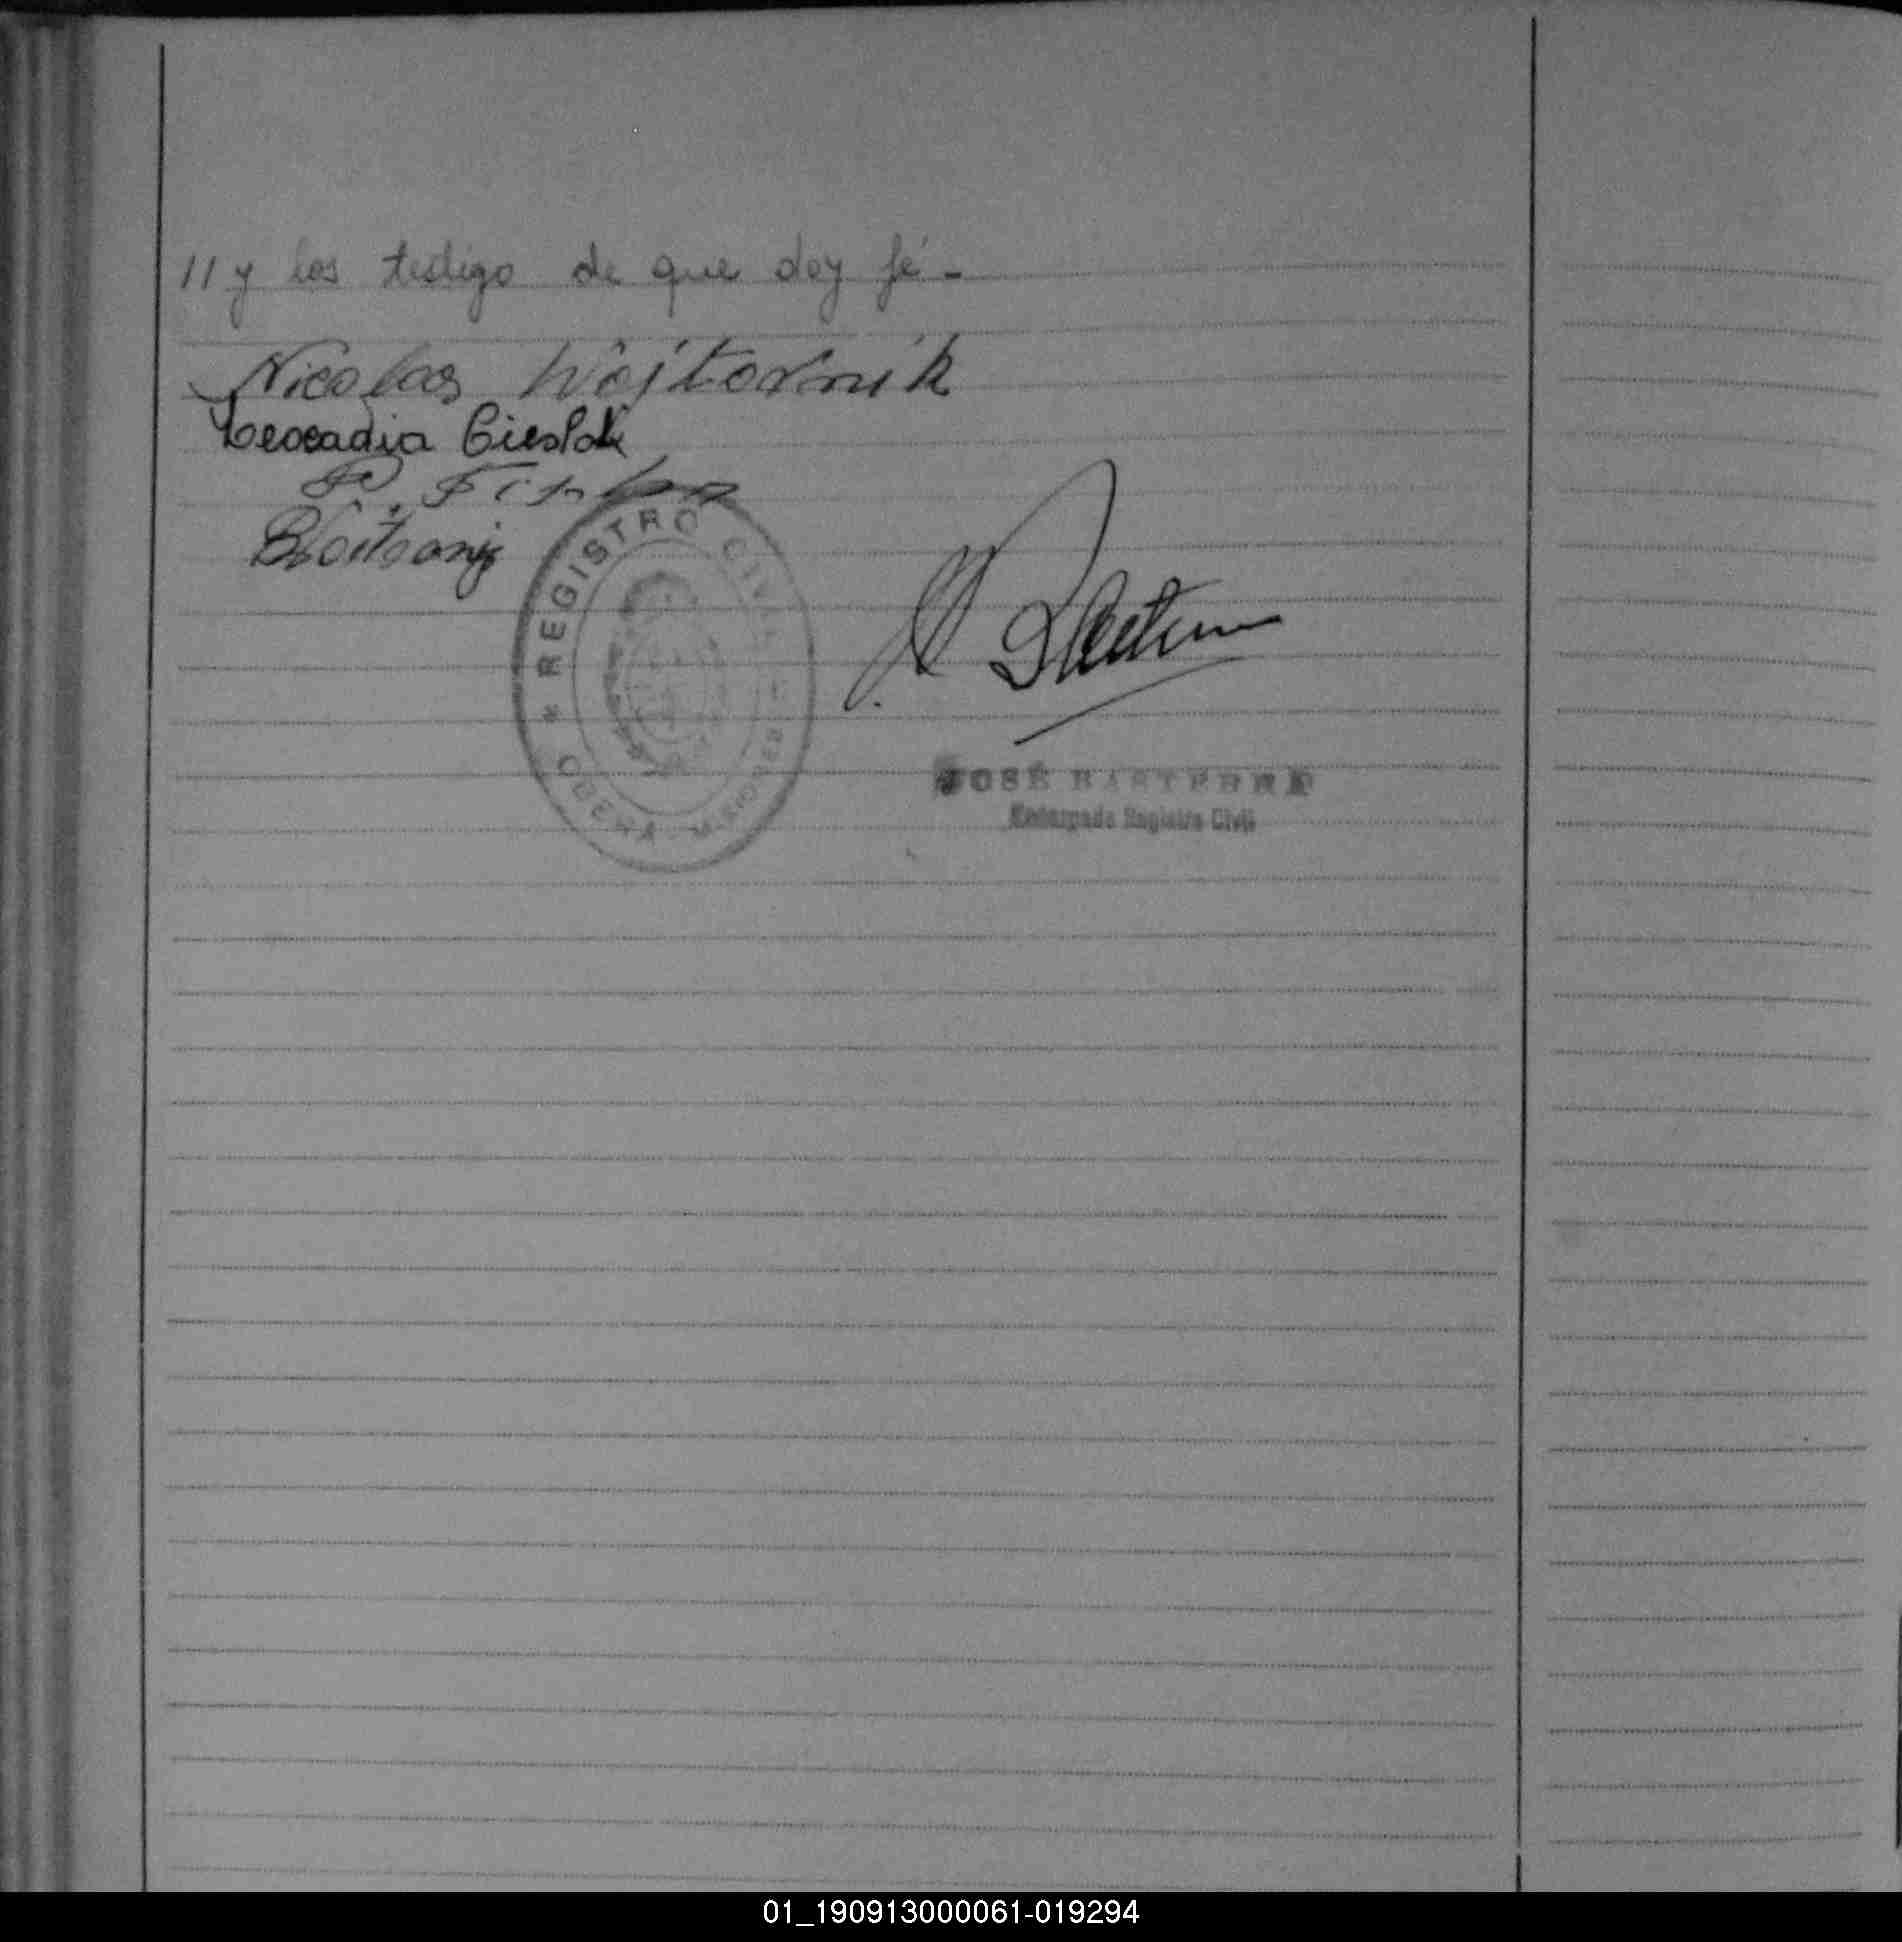 11 y los testigo de que doy fé -
Nicolas Wojtovnik
Leocadia Cieslak
P.
REGISTRO CIVIL
OBERA - MISIONES
JOSÉ BASTERRE
Encargado Registro Civil
01_190913000061-019294